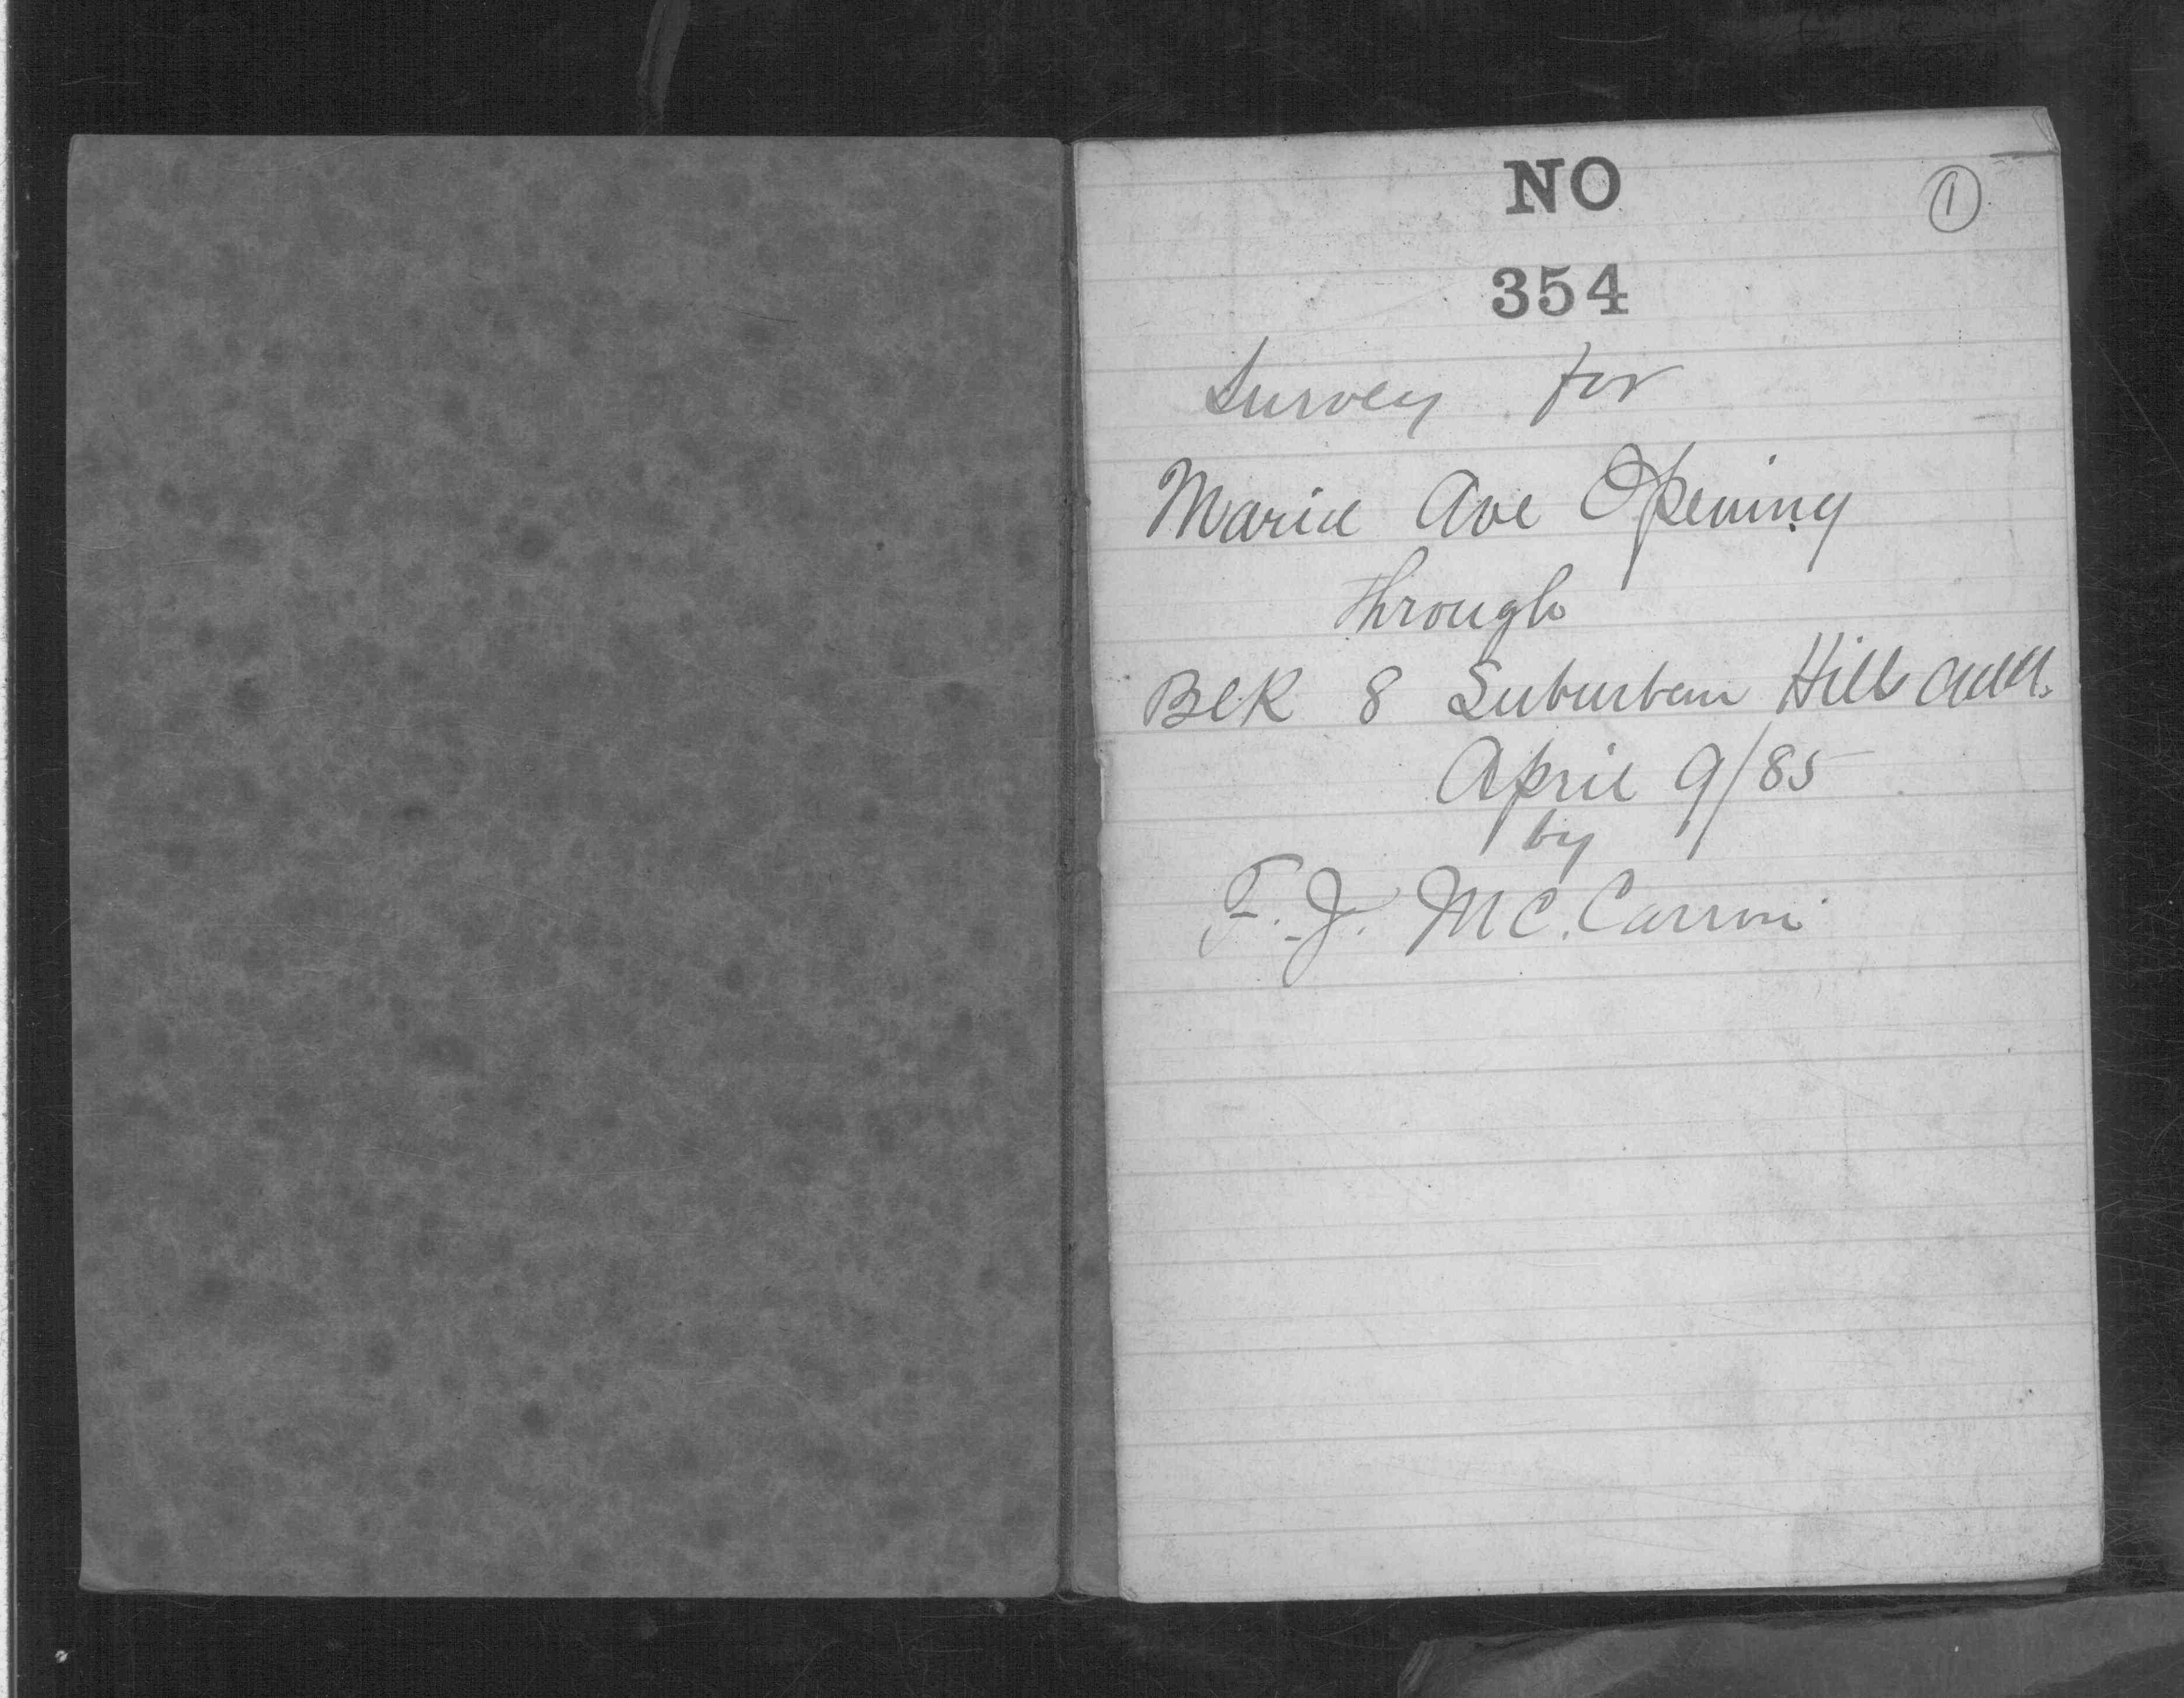 NO
①
354
Survey for
Maria Ave Opening
through
Blk 8 Suburban Hill Add.
April 9/85
by
F. J. McCarron